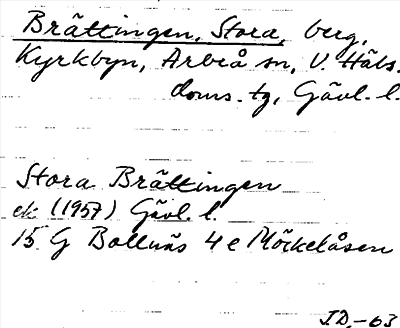 Brättingen, Stora, berg,
Kyrkbyn, Arbrå sn, V. Häls.
doms. tg, Gävl. l.
Stora Brättingen
ek (1957) Gävl. l.
15 G Bollnäs 4 e Möckelåsen
ID.-63